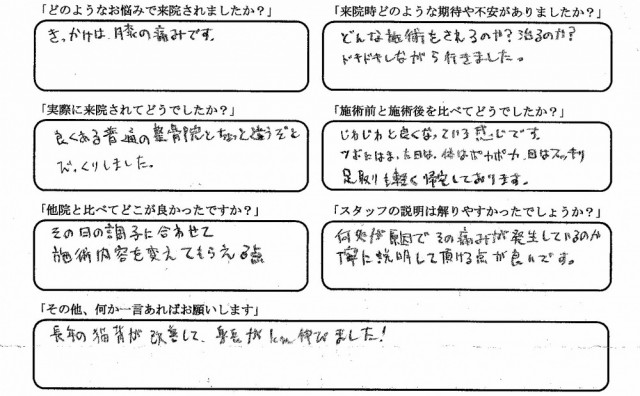 「どのようなお悩みで来院されましたか？」
きっかけは、膝の痛みです。
「来院時どのような期待や不安がありましたか？」
どんな施術をされるのか？治るのか？
ドキドキしながら行きました。
「実際に来院されてどうでしたか？」
良くある普通の整骨院とちょっと違うぞと
びっくりしました。
「施術前と施術後を比べてどうでしたか？」
じわじわと良くなっている感じです。
ツボにはまった日は、体はポカポカ、目はスッキリ
足取りも軽く帰宅しております。
「他院と比べてどこが良かったですか？」
その日の調子に合わせて
施術内容を変えてもらえる点
「スタッフの説明は解りやすかったでしょうか？」
何処が原因でその痛みが発生しているのか
丁寧に説明して頂ける点が良いです。
「その他、何か一言あればお願いします」
長年の猫背が改善して、身長が1cm伸びました！